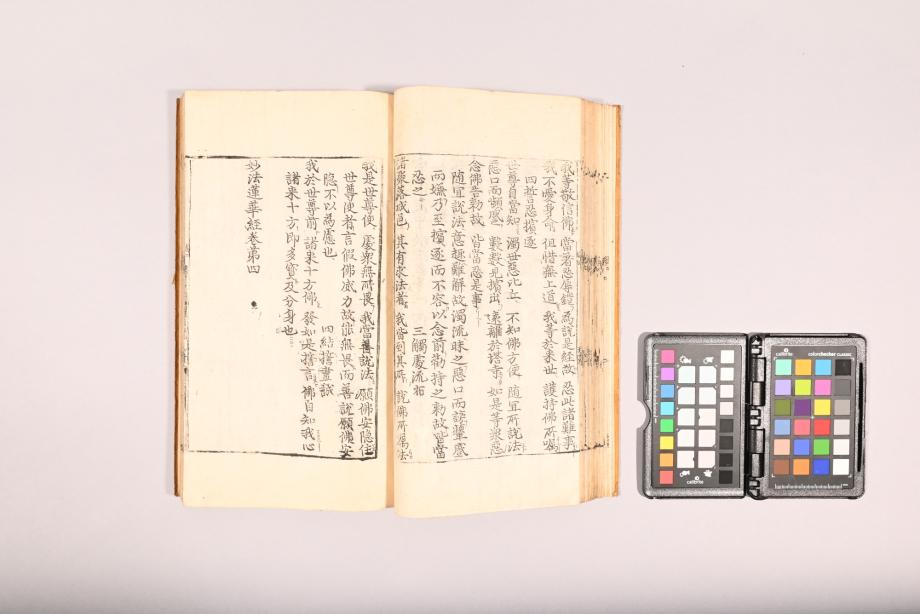 我等敬信佛 當著忍辱鎧 為說是經故 忍此諸難事
我不愛身命 但惜無上道 我等於來世 護持佛所囑
四哲忍擯逐
世尊自當知 濁世惡比丘 不知佛方便 隨宜所說法
惡口而顰蹙 數數見擯出 遠離於塔寺 如是等眾惡
念佛告勅故 皆當忍是事
隨宜說法意趣難解故濁流昧之惡口而誣顰蹙
而嫌乃至擯逐而不容以念前勸持之勅故皆當
忍之
三觸處流拓
諸聚落城邑 其有求法者 我皆到其所 說佛所囑法
我是世尊使 處眾無所畏 我當善說法 願佛安隱住
世尊使者言假佛威力故能無畏而善說願佛安
隱不以為慮也
四結
我於世尊前 諸來十方佛 發如是誓言 佛自知我心
諸來十方即多寶及分身也
妙法蓮華經卷第四
calibrite
colorchecker CLASSIC
calibrite